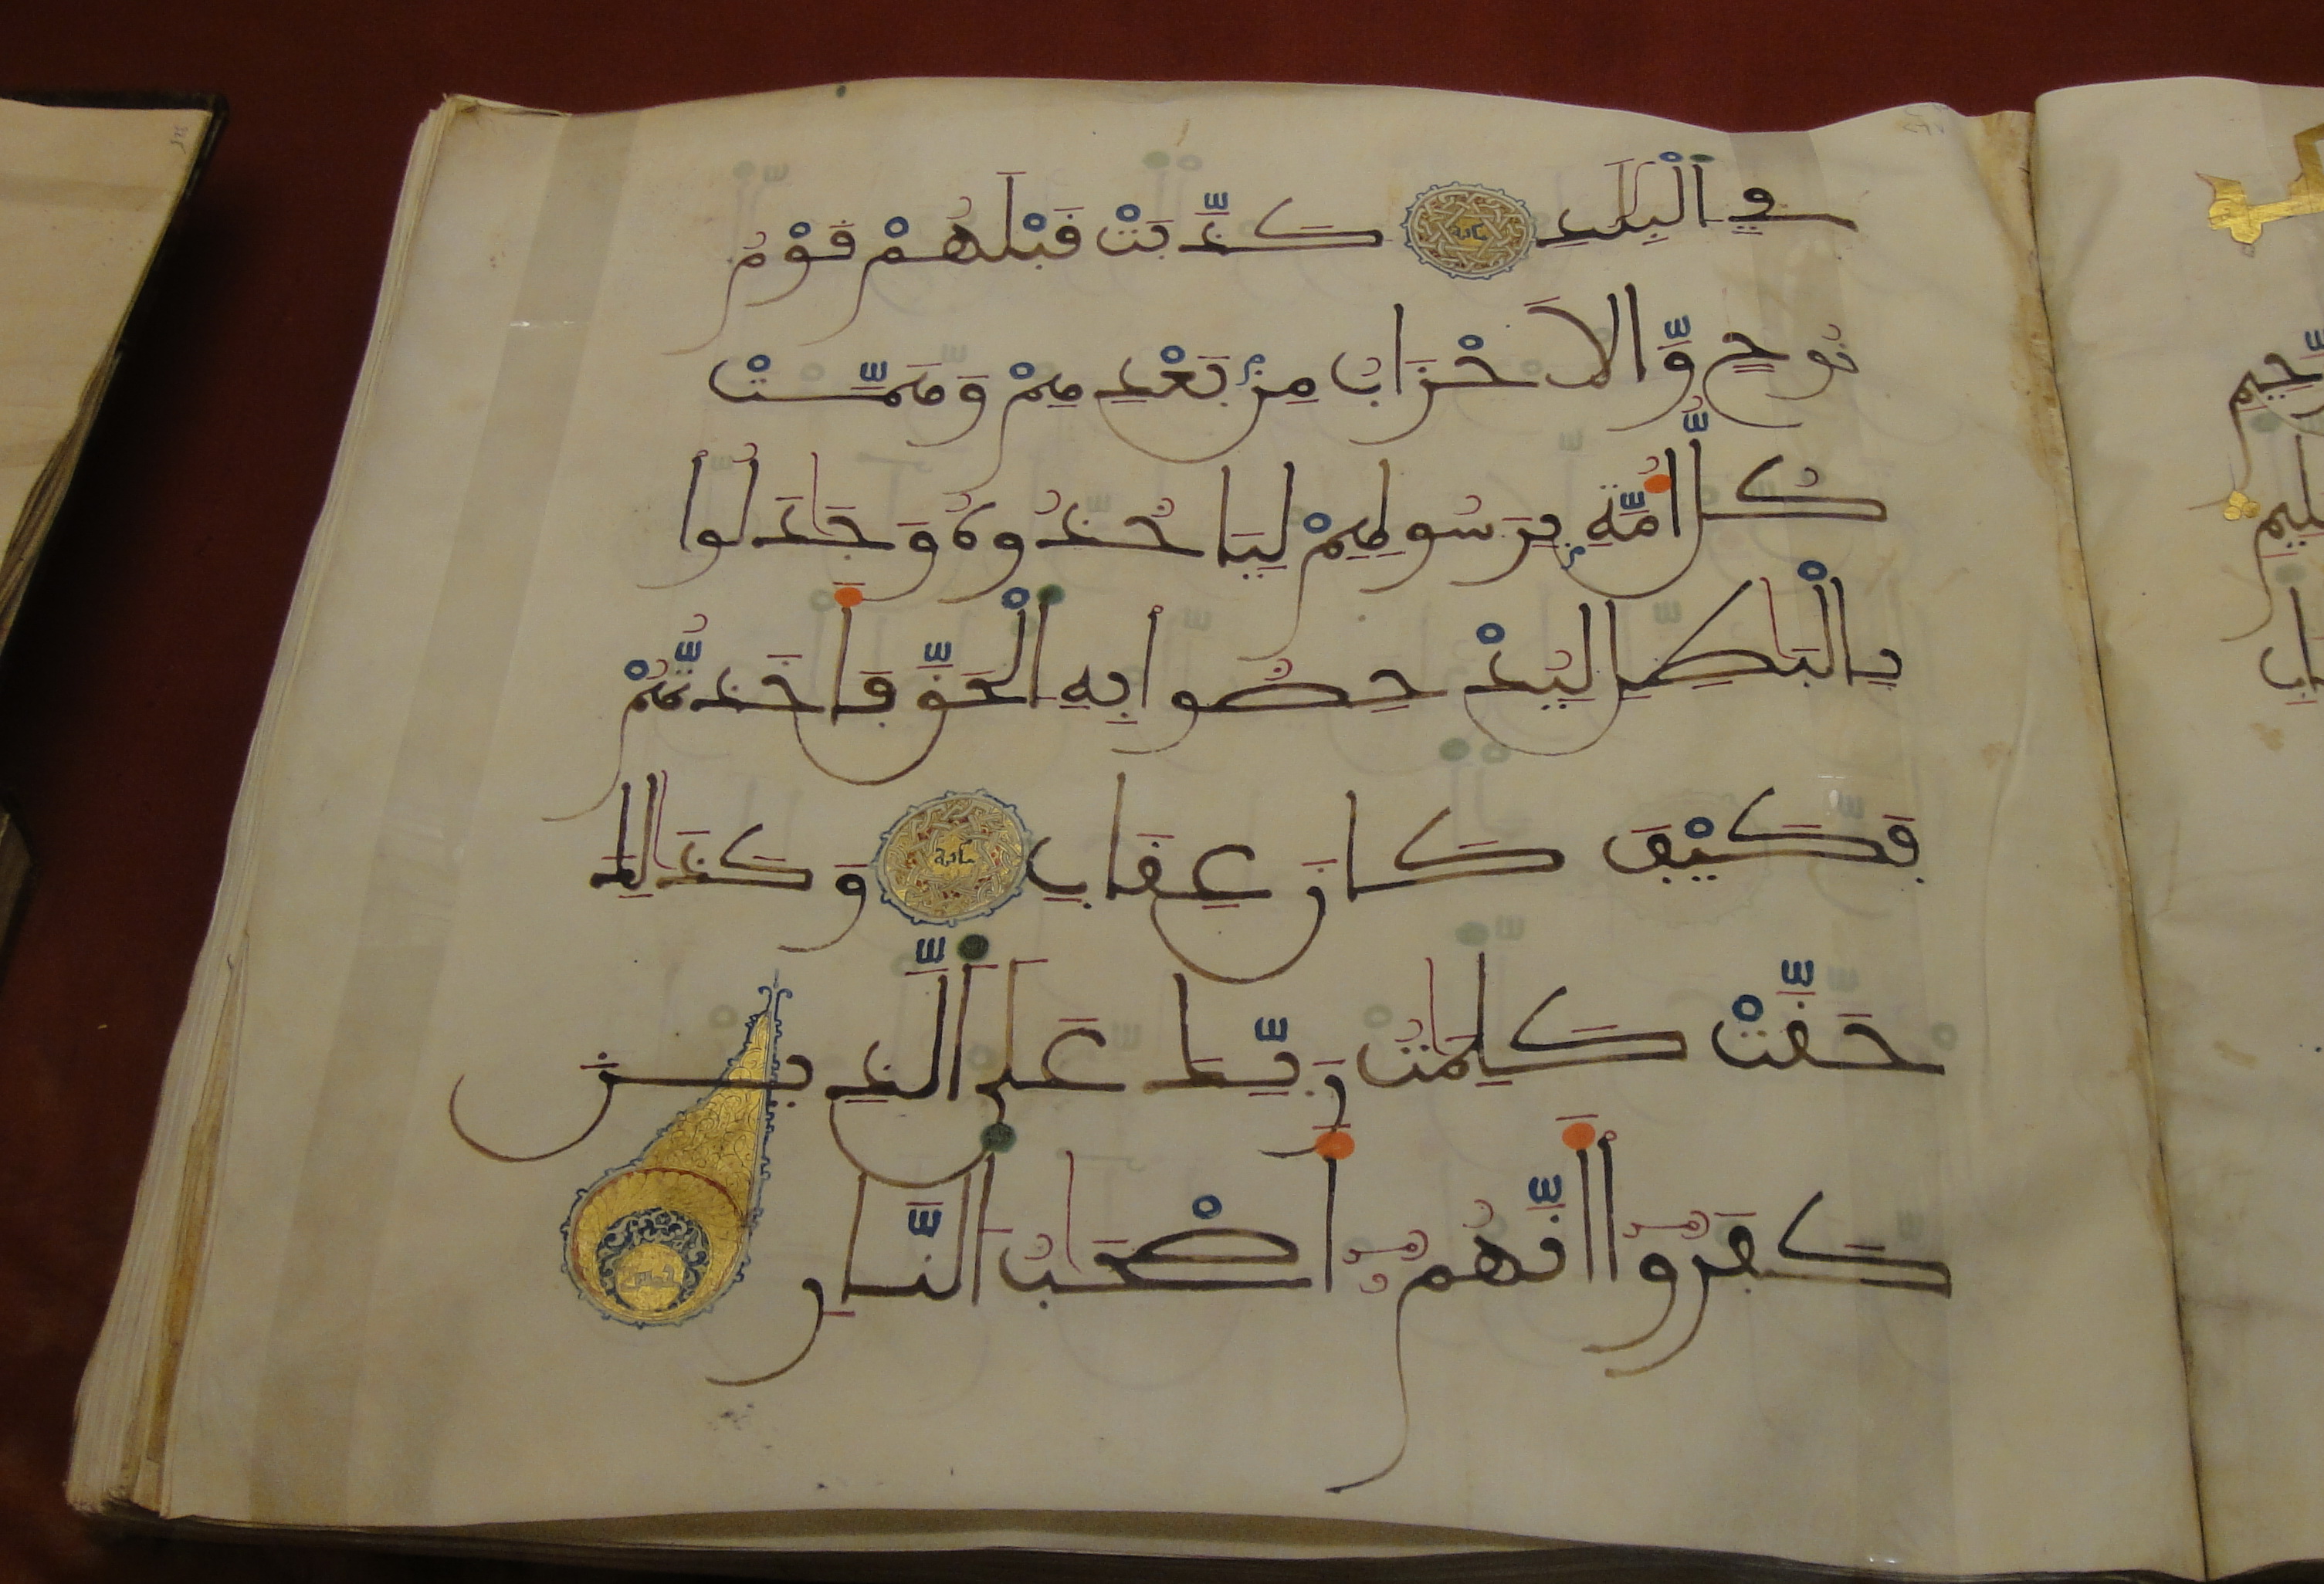 فِي الْبِلَٰدِ كَذَّبَتْ قَبْلَهُمْ قَوْمُ
نُوحٍ وَّالَاحْزَابُ مِنۢ بَعْدِهِمْ وَهَمَّتْ
كُلُّ أُمَّةِۭ بِرَسُولِهِمْ لِيَاخُذُوهُ وَجَٰدَلُوا
بِالْبَٰطِلِ لِيُدْحِضُوا بِهِ الْحَقَّ فَأَخَذتُّهُمْ
فَكَيْفَ كَانَ عِقَابِ وَكَذَٰلِكَ
حَقَّتْ كَلِمَٰتُ رَبِّكَ عَلَى الَّذِينَ
كَفَرُوا أَنَّهُمُ أَصْحَٰبُ النَّارِ